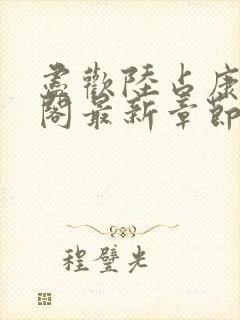 盡歡陸占康
閣最新章節
程璧光